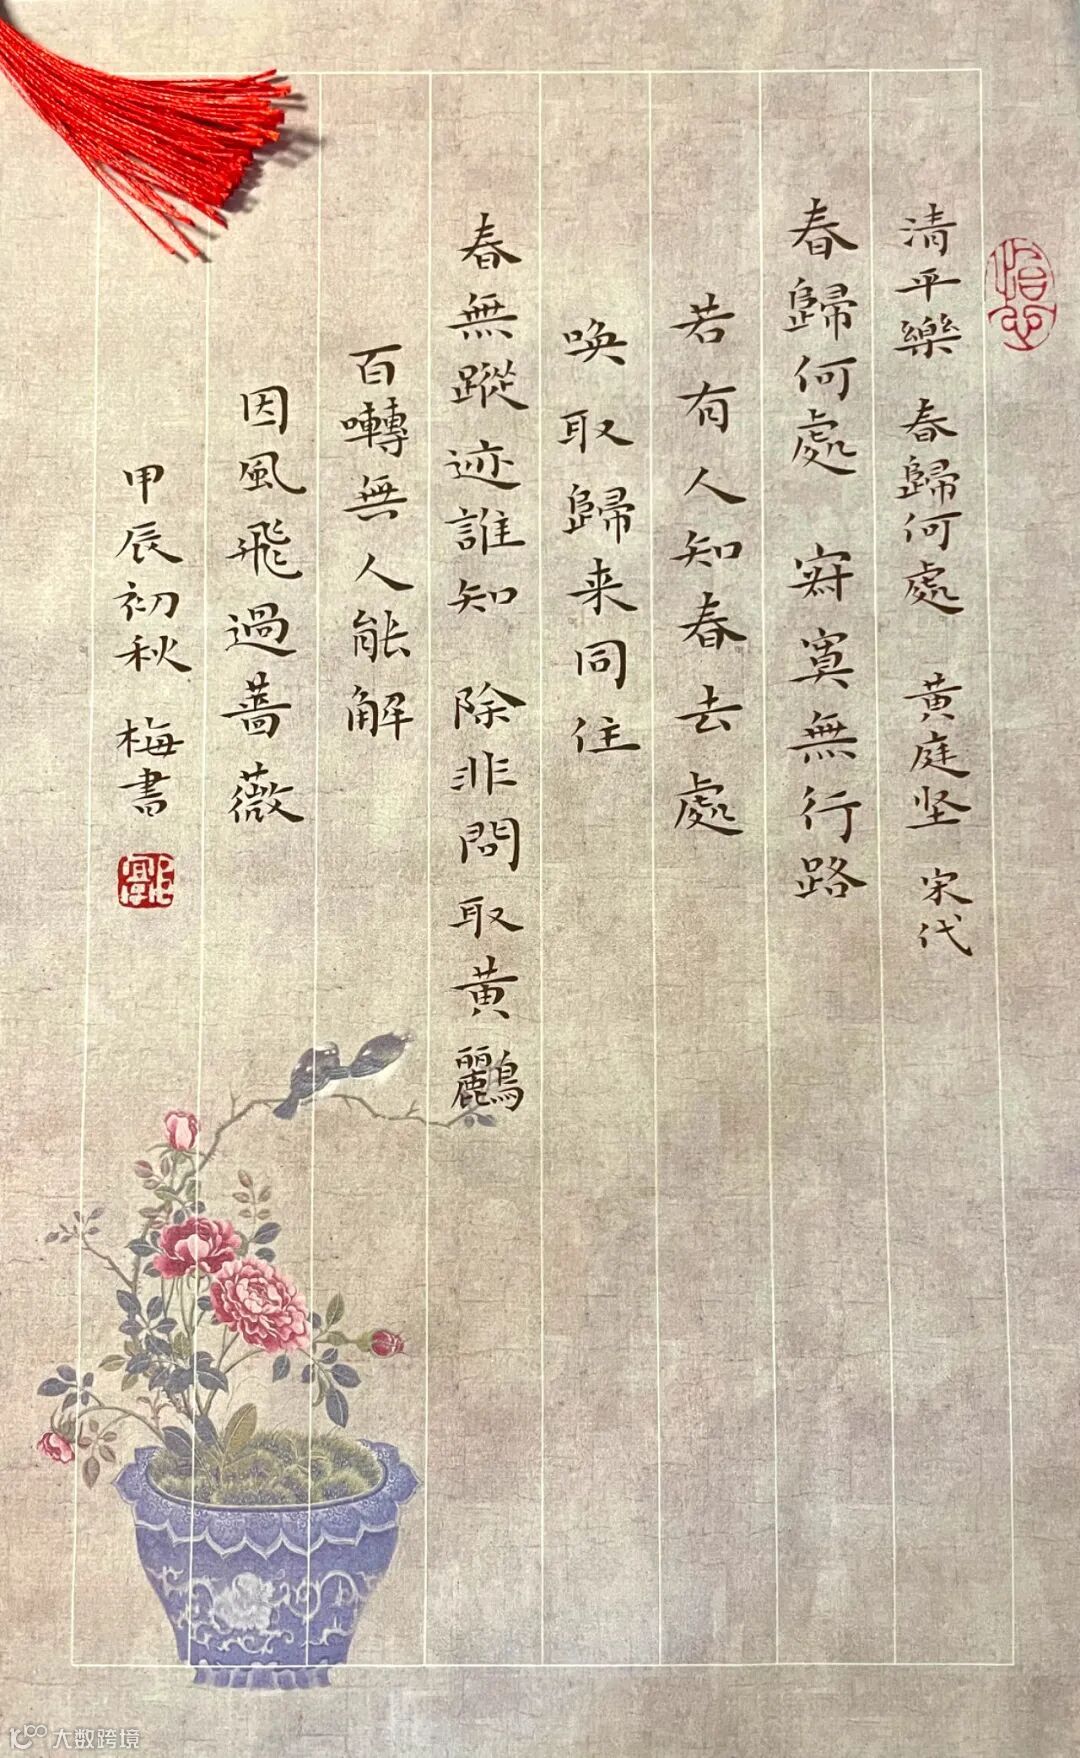 清平樂 春歸何處 黄庭坚 宋代
春歸何處 寂寞無行路
若有人知春去處
喚取歸来同住
春無蹤迹誰知 除非問取黄鸝
百囀無人能解
因風飛過薔薇
甲辰初秋 梅書
大数跨境